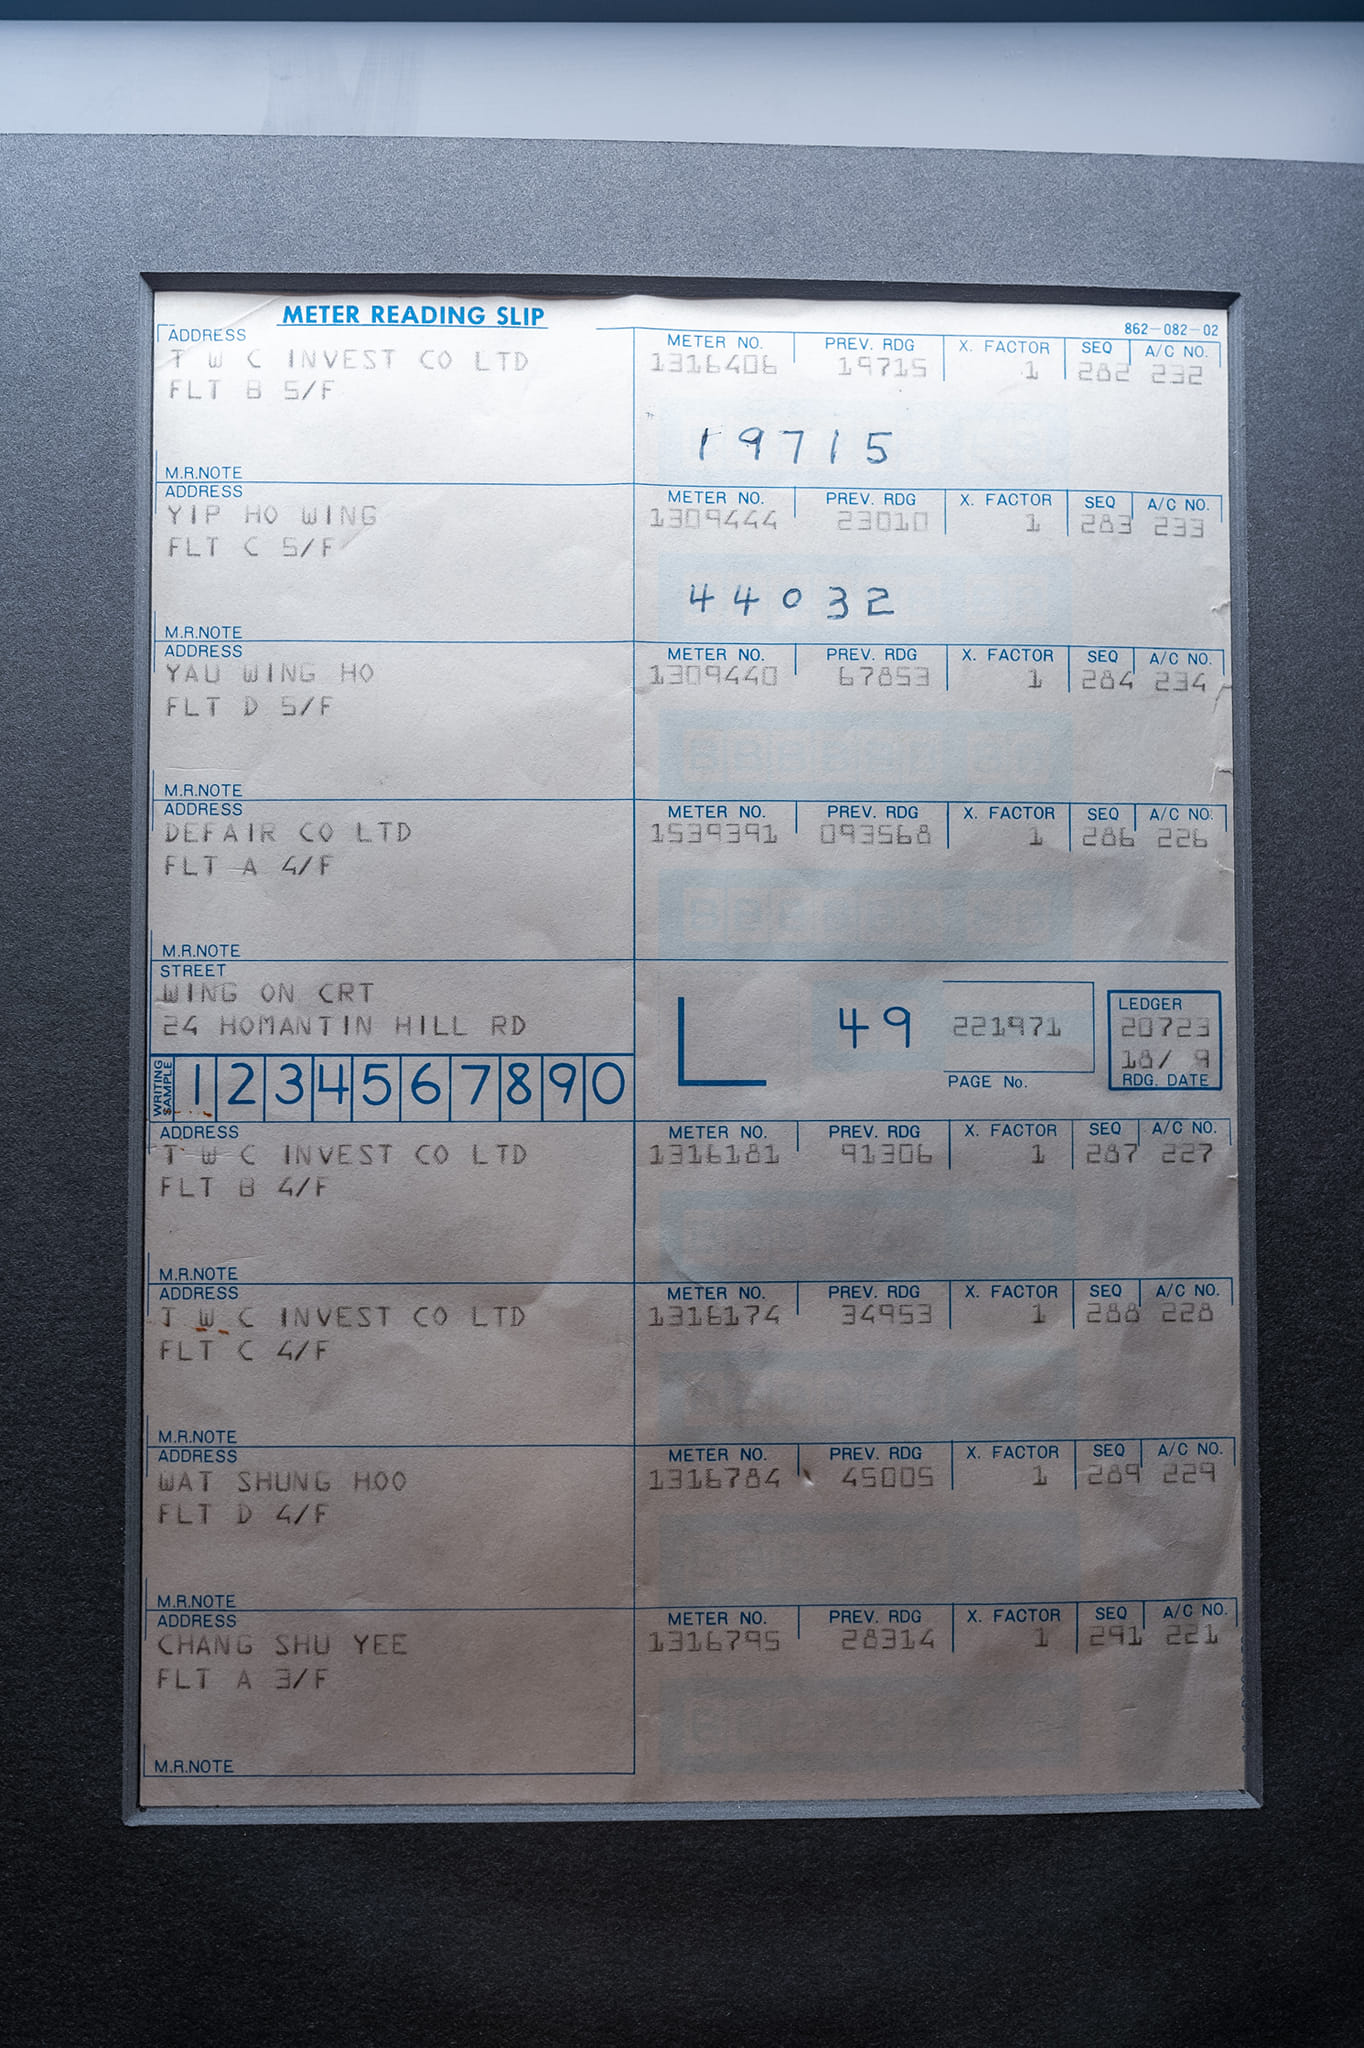 METER READING SLIP
862-082-02
ADDRESS METER NO. PREV. RDG X. FACTOR SEQ A/C NO.
T W C INVEST CO LTD 1316406 19715 1 282 232
FLT B 5/F
19715
M.R.NOTE
ADDRESS METER NO. PREV. RDG X. FACTOR SEQ A/C NO.
YIP HO WING 1309444 23010 1 283 233
FLT C 5/F
44032
M.R.NOTE
ADDRESS METER NO. PREV. RDG X. FACTOR SEQ A/C NO.
YAU WING HO 1309440 67853 1 284 234
FLT D 5/F
M.R.NOTE
ADDRESS METER NO. PREV. RDG X. FACTOR SEQ A/C NO.
DEFAIR CO LTD 1539391 093568 1 286 226
FLT A 4/F
M.R.NOTE
STREET
WING ON CRT
24 HOMANTIN HILL RD
L 49 221971
PAGE No.
LEDGER
20723
18/ 9
RDG. DATE
WRITING SAMPLE 1 2 3 4 5 6 7 8 9 0
ADDRESS METER NO. PREV. RDG X. FACTOR SEQ A/C NO.
T W C INVEST CO LTD 1316181 91306 1 287 227
FLT B 4/F
M.R.NOTE
ADDRESS METER NO. PREV. RDG X. FACTOR SEQ A/C NO.
T W C INVEST CO LTD 1316174 34953 1 288 228
FLT C 4/F
M.R.NOTE
ADDRESS METER NO. PREV. RDG X. FACTOR SEQ A/C NO.
WAT SHUNG HOO 1316784 45005 1 289 229
FLT D 4/F
M.R.NOTE
ADDRESS METER NO. PREV. RDG X. FACTOR SEQ A/C NO.
CHANG SHU YEE 1316795 28314 1 291 221
FLT A 3/F
M.R.NOTE